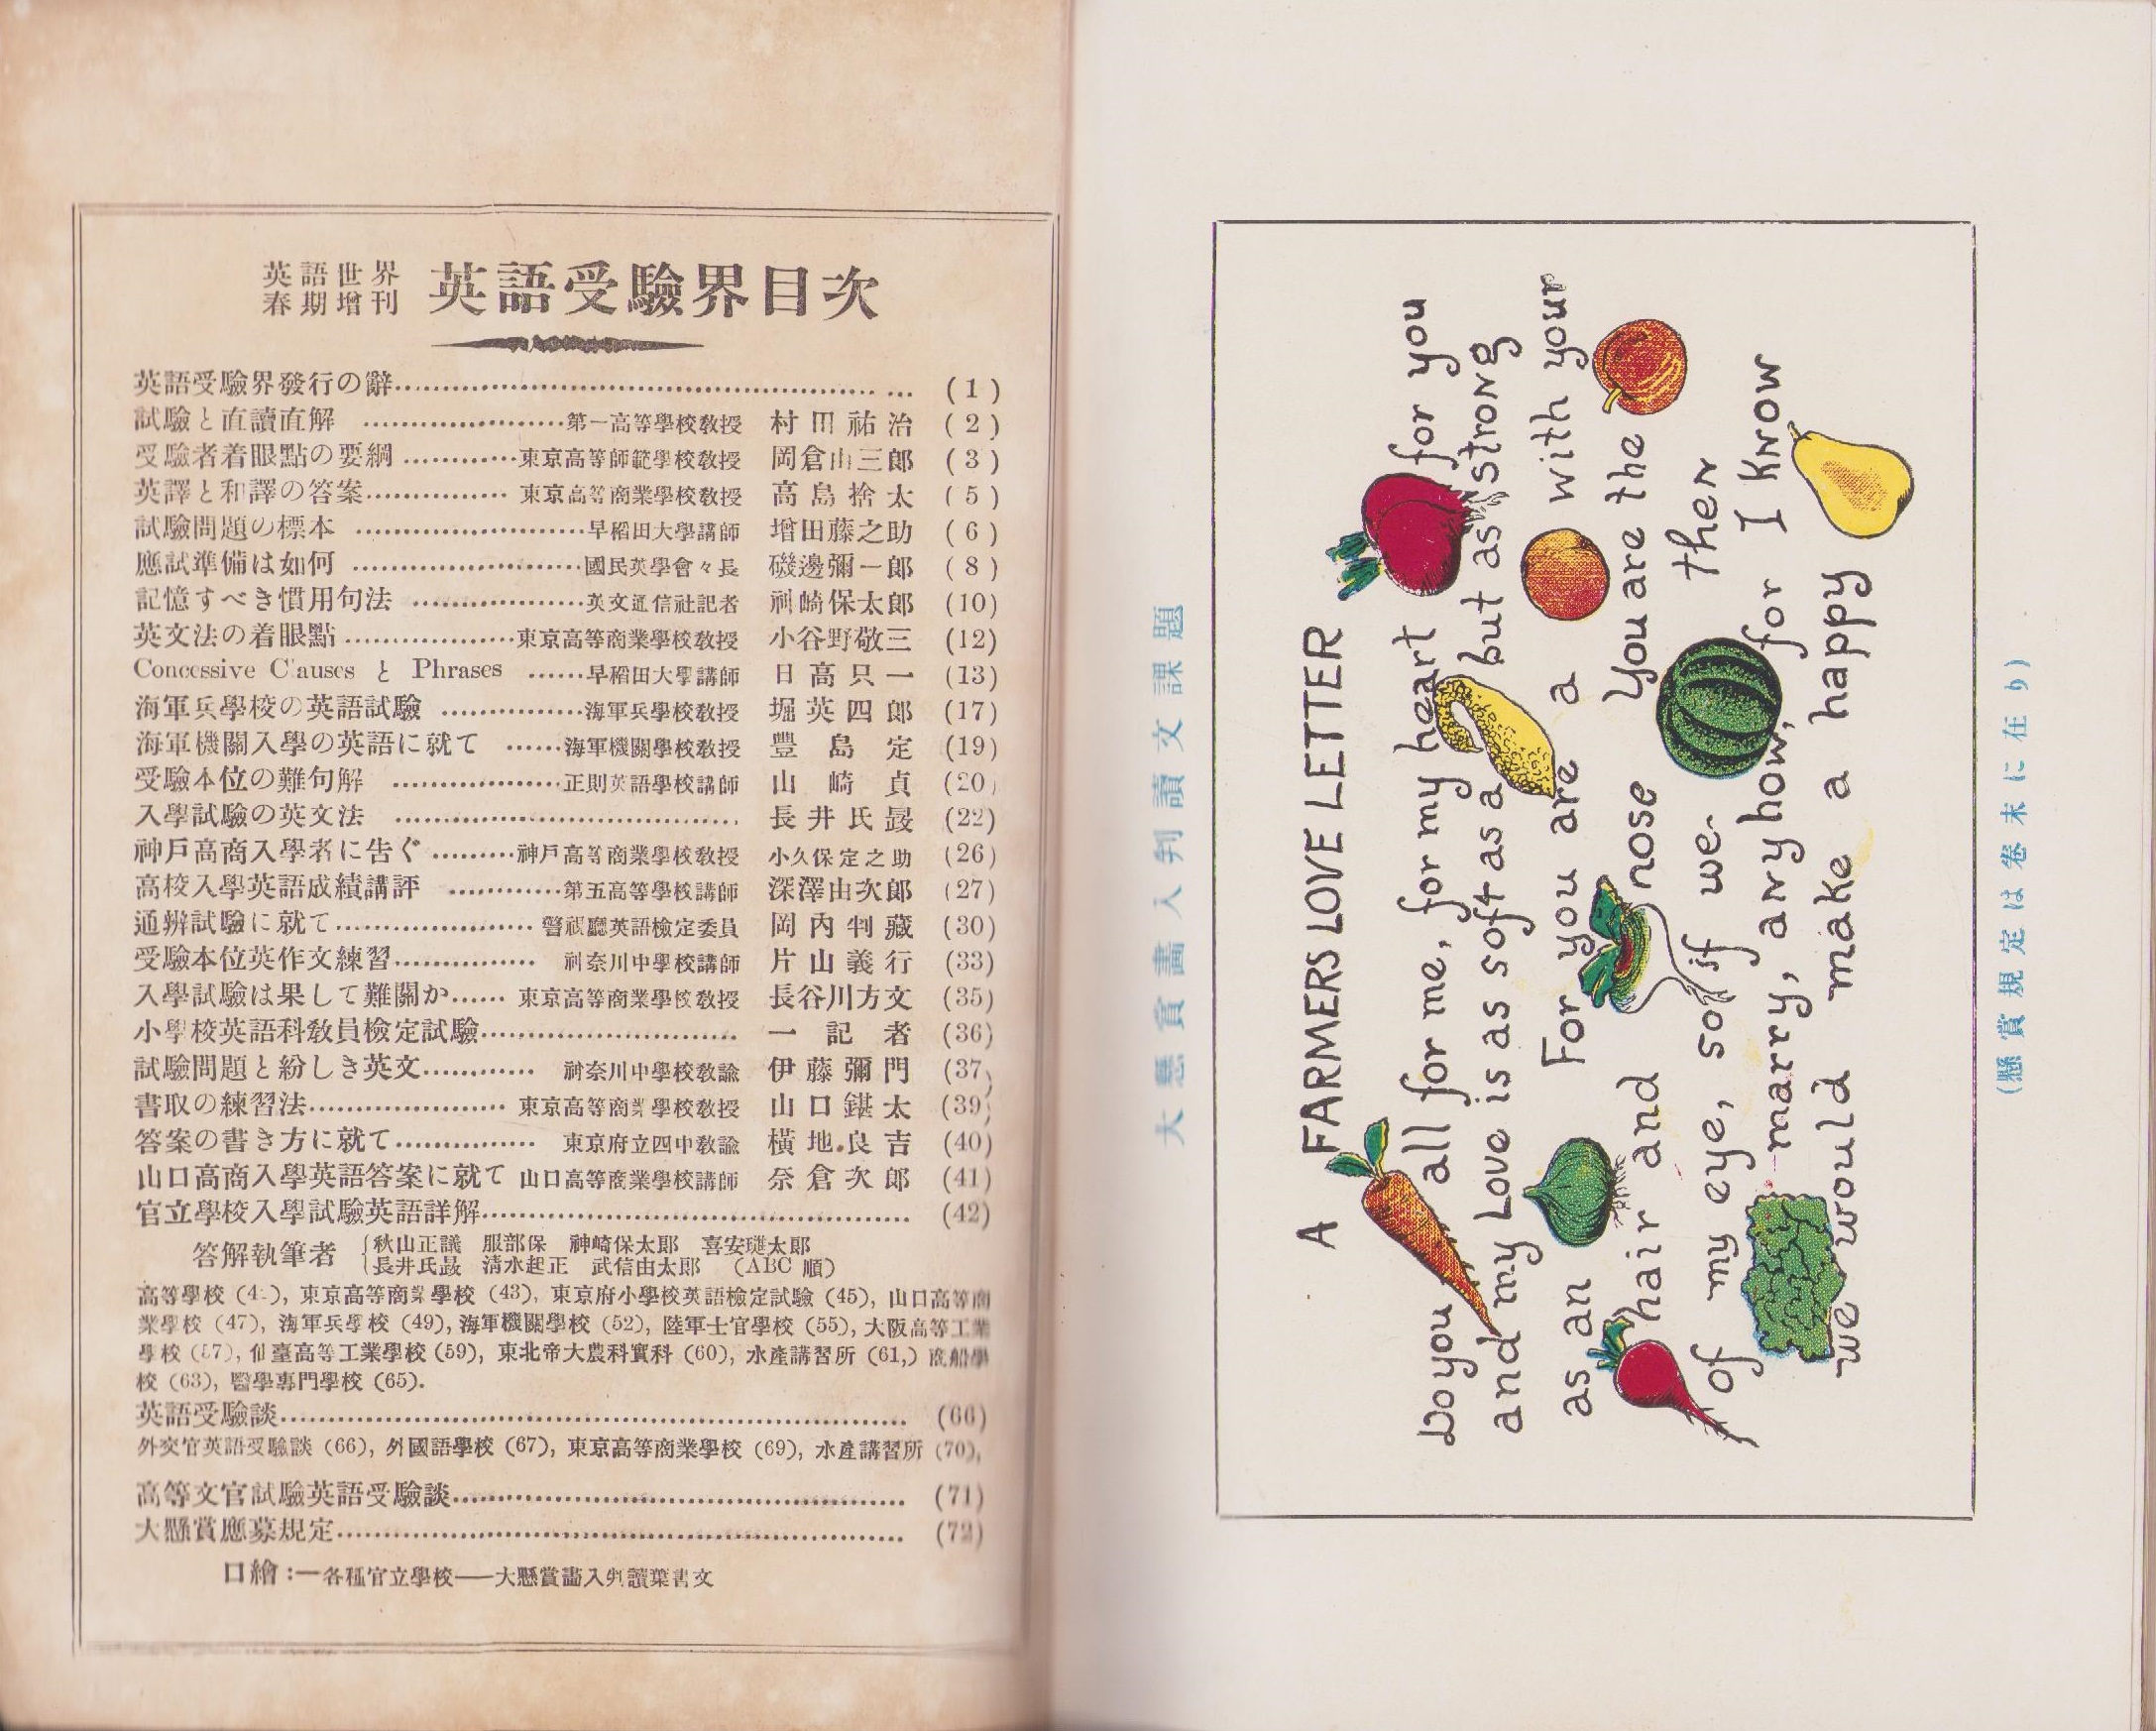 英語世界
春期增刊
英語受驗界目次
英語受驗界發行の辭 (1)
試驗と直讀直解 第一高等學校敎授 村田祐治 (2)
受驗者着眼點の要綱 東京高等師範學校敎授 岡倉由三郎 (3)
英譯と和譯の答案 東京高等商業學校敎授 高島捨太 (5)
試驗問題の標本 早稻田大學講師 增田藤之助 (6)
應試準備は如何 國民英學會々長 磯邊彌一郎 (8)
記憶すべき慣用句法 英文通信社記者 神崎保太郎 (10)
英文法の着眼點 東京高等商業學校敎授 小谷野敬三 (12)
Concessive Clauses と Phrases 早稻田大學講師 日高只一 (13)
海軍兵學校の英語試驗 海軍兵學校敎授 堀英四郎 (17)
海軍機關入學の英語に就て 海軍機關學校敎授 豐島定 (19)
受驗本位の難句解 正則英語學校講師 山崎貞 (20)
入學試驗の英文法 長井氏晸 (22)
神戶高商入學者に告ぐ 神戶高等商業學校敎授 小久保定之助 (26)
高校入學英語成績講評 第五高等學校講師 深澤由次郎 (27)
通辨試驗に就て 警視廳英語檢定委員 岡內判藏 (30)
受驗本位英作文練習 神奈川中學校講師 片山義行 (33)
入學試驗は果して難關か 東京高等商業學校敎授 長谷川方文 (35)
小學校英語科敎員檢定試驗 一記者 (36)
試驗問題と紛しき英文 神奈川中學校敎諭 伊藤彌門 (37)
書取の練習法 東京高等商業學校敎授 山口鍖太 (39)
答案の書き方に就て 東京府立四中敎諭 橫地良吉 (40)
山口高商入學英語答案に就て 山口高等商業學校講師 奈倉次郎 (41)
官立學校入學試驗英語詳解 (42)
答解執筆者 秋山正議 服部保 神崎保太郎 喜安璡太郎
長井氏晸 淸水起正 武信由太郎 (ABC 順)
高等學校 , 東京高等商業學校 (43), 東京府小學校英語檢定試驗 (45), 山口高等商
業學校 (47), 海軍兵學校 (49), 海軍機關學校 (52), 陸軍士官學校 (55), 大阪高等工業
學校 (57), 仙臺高等工業學校 (59), 東北帝大農科實科 (60), 水產講習所 (61,) 商船學
校 (63), 醫學專門學校 (65).
英語受驗談 (66)
外交官英語受驗談 (66), 外國語學校 (67), 東京高等商業學校 (69), 水產講習所 (70),
高等文官試驗英語受驗談 (71)
大懸賞應募規定 (72)
口繪：—各種官立學校——大懸賞畵入判讀葉書文
大懸賞畵入判讀文課題
A FARMERS LOVE LETTER
Do you all for me, for my heart for you
and my Love is as soft as a but as strong
as an For you are a with your
hair and nose You are the
of my eye, so if we then
marry, any how, for I know
we would make a happy
(懸賞規定は卷末に在り)